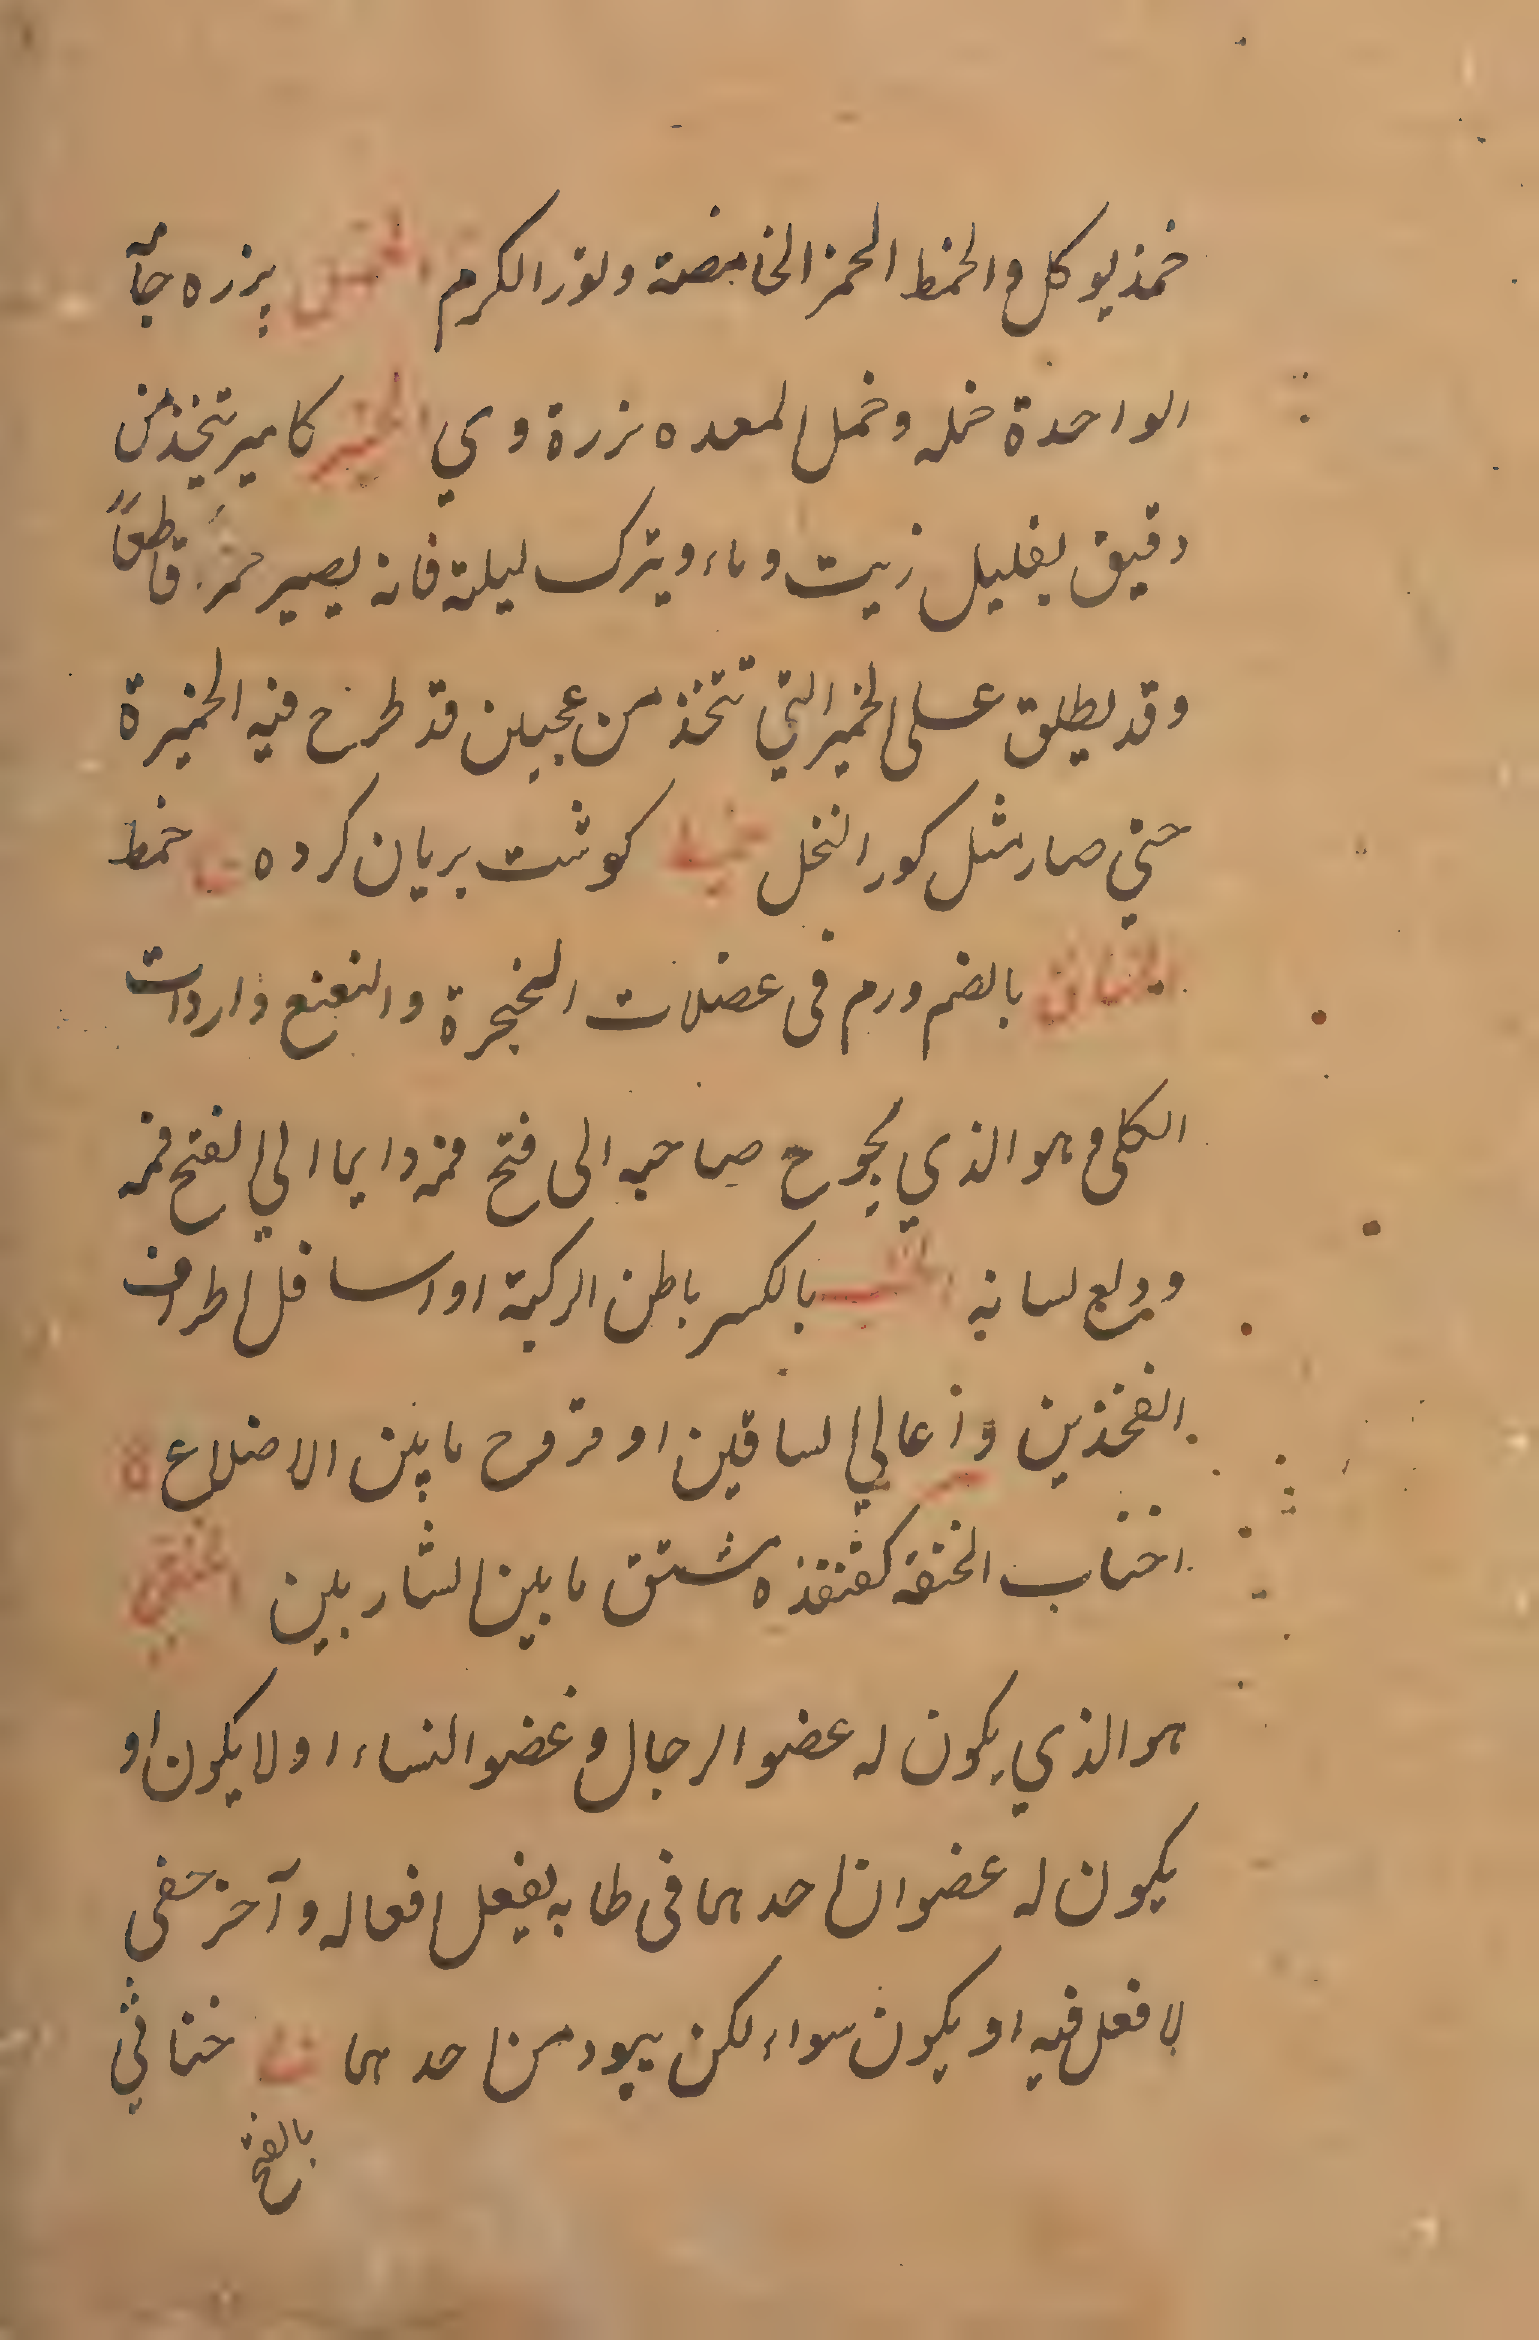 خمذ يوكل والخمط الحمز الخامضة ونور الكرم الخمل پزره جآ
الواحدة خمله وخمل المعده نزرة وي الخمير كامير يتخذ من
دقيق بقليل زيت وماء ويترك ليلة فانه يصير خمر قاطعاً
وقد يطلق على الخمير التي تتخذ من عجين قد طرح فيه الخميرة
حتي صار مثل كور النخل خميط كوشت بريان كرده ن خمط
الخناق بالضم ورم فى عضلات الحنجرة والنغنغ واردات
الكلى وهو الذي يحوج صاحبه الى فتح فمه دايما الي لفتح فمه
ودلع لسانه الخنب بالكسر باطن الركبة او اسافل اطراف
الفخذين وأعالي الساقين او فروح ما بين الاضلاع ة
اخناب الخنثقة كقنفذه شتق ما بين الشاربين الخنثى
هو الذي يكون له عضو الرجال وعضو النساء او لا يكون او
يكون له عضوان احدهما فى طابه يفعل افعاله وآخر خفى
لا فعل فيه او يكون سواء لكن يبود من احدهما ن خناثي
بالفتح